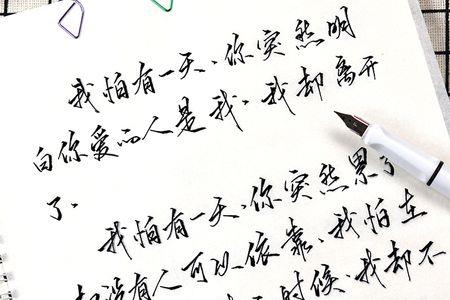 我怕有一天、你突然明
白你爱的人是我、我却离开
了、
我怕有一天、你突然累了
却没有人可以依靠、我怕在
时候、我却不